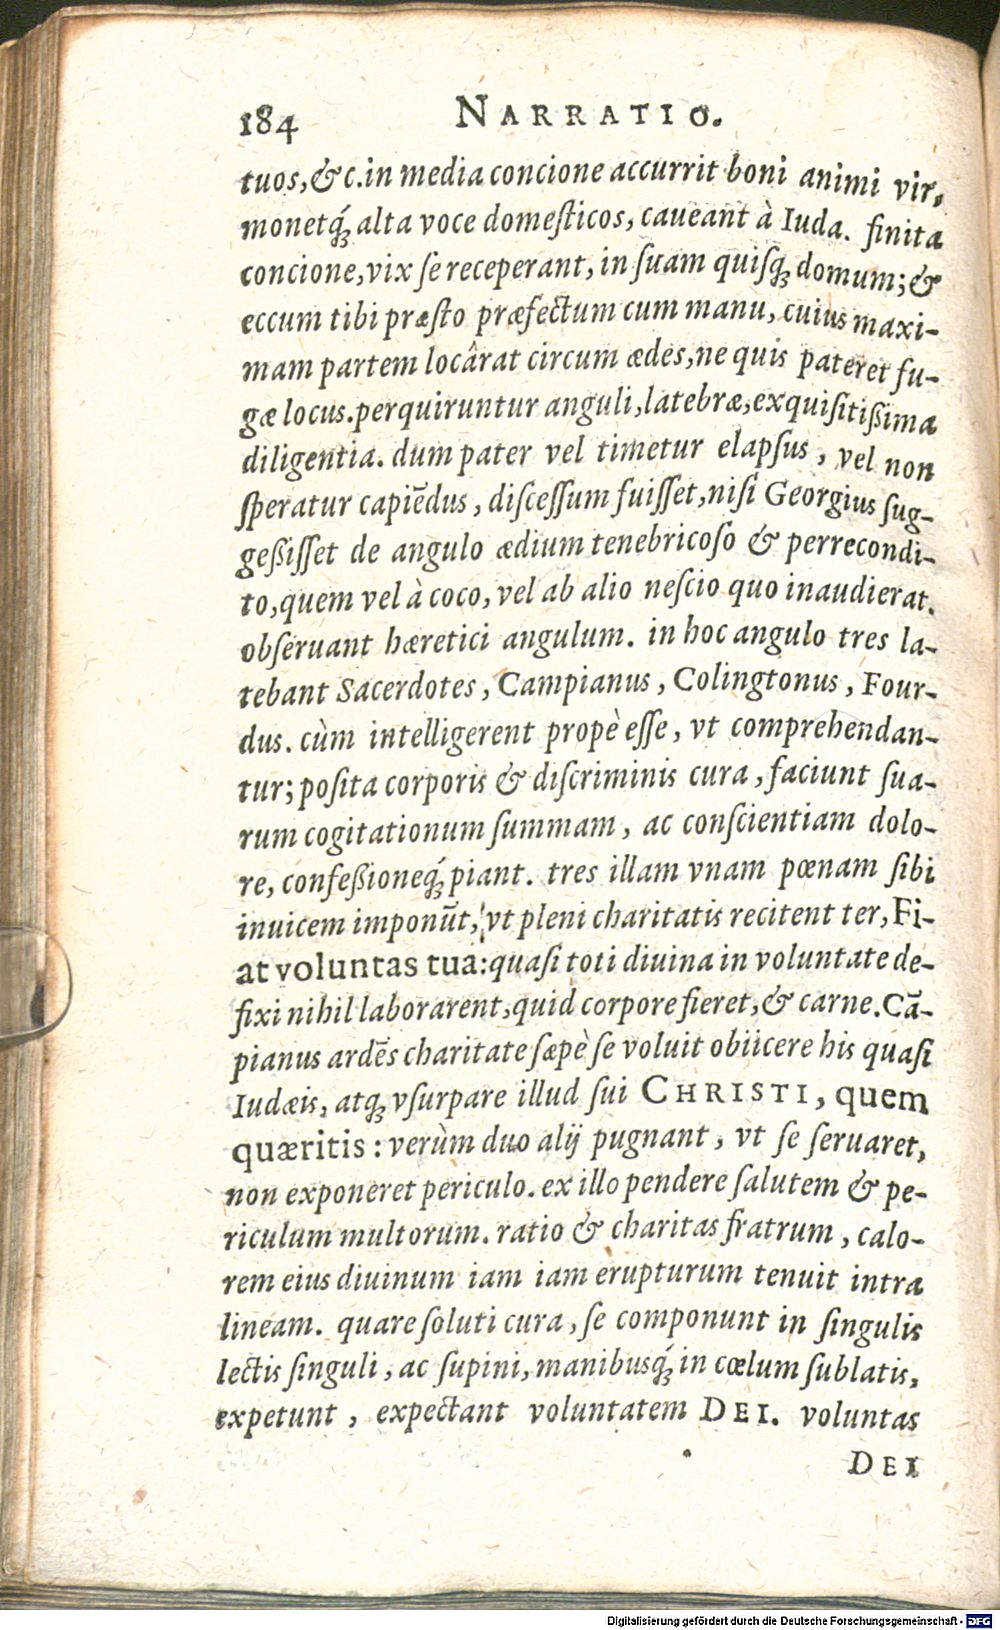 184 NARRATIO.
tuos, &c. in media concione accurrit boni animi vir,
monetq́ꝫ alta voce domeſticos, caueant à Iuda. finita
concione, vix ſe receperant, in ſuam quiſqꝫ domum; &
eccum tibi præſto præfectum cum manu, cuius maxi-
mam partem locârat circum ædes, ne quis pateret fu-
gæ locus. perquiruntur anguli, latebræ, exquiſitißima
diligentia. dum pater vel timetur elapſus, vel non
ſperatur capiẽdus, diſceſſum fuiſſet, niſi Georgius ſug-
geßiſſet de angulo ædium tenebricoſo & perrecondi-
to, quem vel à coco, vel ab alio neſcio quo inaudierat.
obſeruant hæretici angulum. in hoc angulo tres la-
tebant Sacerdotes, Campianus, Colingtonus, Four-
dus. cùm intelligerent propè eſſe, vt comprehendan-
tur; poſita corporis & diſcriminis cura, faciunt ſua-
rum cogitationum ſummam, ac conſcientiam dolo-
re, confeßioneq́ꝫ piant. tres illam vnam pœnam ſibi
inuicem imponũt, vt pleni charitatis recitent ter, Fi-
at voluntas tua: quaſi toti diuina in voluntate de-
fixi nihil laborarent, quid corpore fieret, & carne. Cã-
pianus ardẽs charitate ſæpè ſe voluit obiicere his quaſi
Iudæis, atqꝫ vſurpare illud ſui CHRISTI, quem
quæritis: verùm duo alij pugnant, vt ſe ſeruaret,
non exponeret periculo. ex illo pendere ſalutem & pe-
riculum multorum. ratio & charitas fratrum, calo-
rem eius diuinum iam iam erupturum tenuit intra
lineam. quare ſoluti cura, ſe componunt in ſingulis
lectis ſinguli, ac ſupini, manibusq́ꝫ in cœlum ſublatis,
expetunt, expectant voluntatem DEI. voluntas
DEI
Digitalisierung gefördert durch die Deutsche Forschungsgemeinschaft - DFG